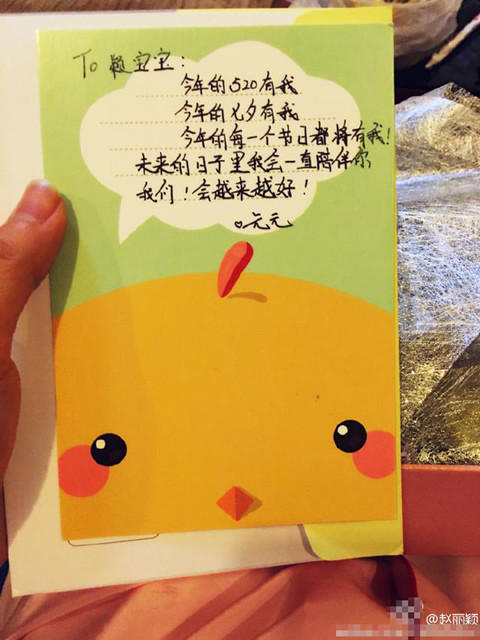 To 颖宝宝：
今年的520有我
今年的七夕有我
今年的每一个节日都将有我！
未来的日子里我会一直陪伴你
我们！会越来越好！
♡元元
@赵丽颖